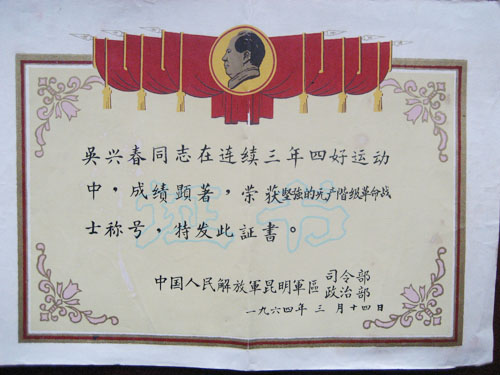 吳兴春同志在连续三年四好运动
中，成绩顕著，荣获坚強的无产階级革命战
士称号，特发此証書。
证书
中国人民解放軍昆明軍區 司令部
政治部
一九六四年 三 月十四日